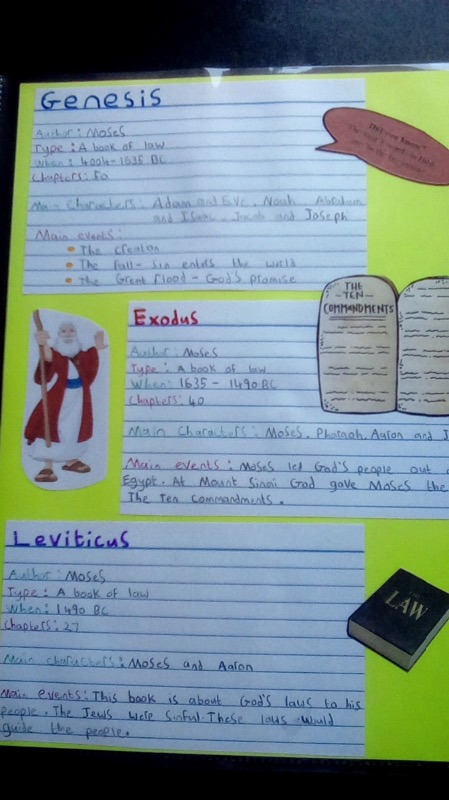 Genesis
Author: Moses
Type: A book of law
When: 4004-1635 BC
Chapters: 50
Main Characters: Adam and Eve, Noah, Abraham
and Isaac, Jacob and Joseph
Main events:
The Creaton
The Fall- Sin enters the world
The Great Flood - God's promise
Did you know?
THE
TEN
COMMANDMENTS
Exodus
Author: Moses
Type: A book of law
When: 1635 - 1490 BC
Chapters: 40
Main Characters: Moses, Pharaoh, Aaron and J
Main events: Moses led God's people out
Egypt. At Mount Sinai God gave Moses the
The Ten Commandments.
Leviticus
Author: Moses
Type: A book of law
When: 1490 BC
Chapters: 27
LAW
Main characters: Moses and Aaron
Main events: This book is about God's laws to his
people. The Jews were sinful. These laws would
guide the people.